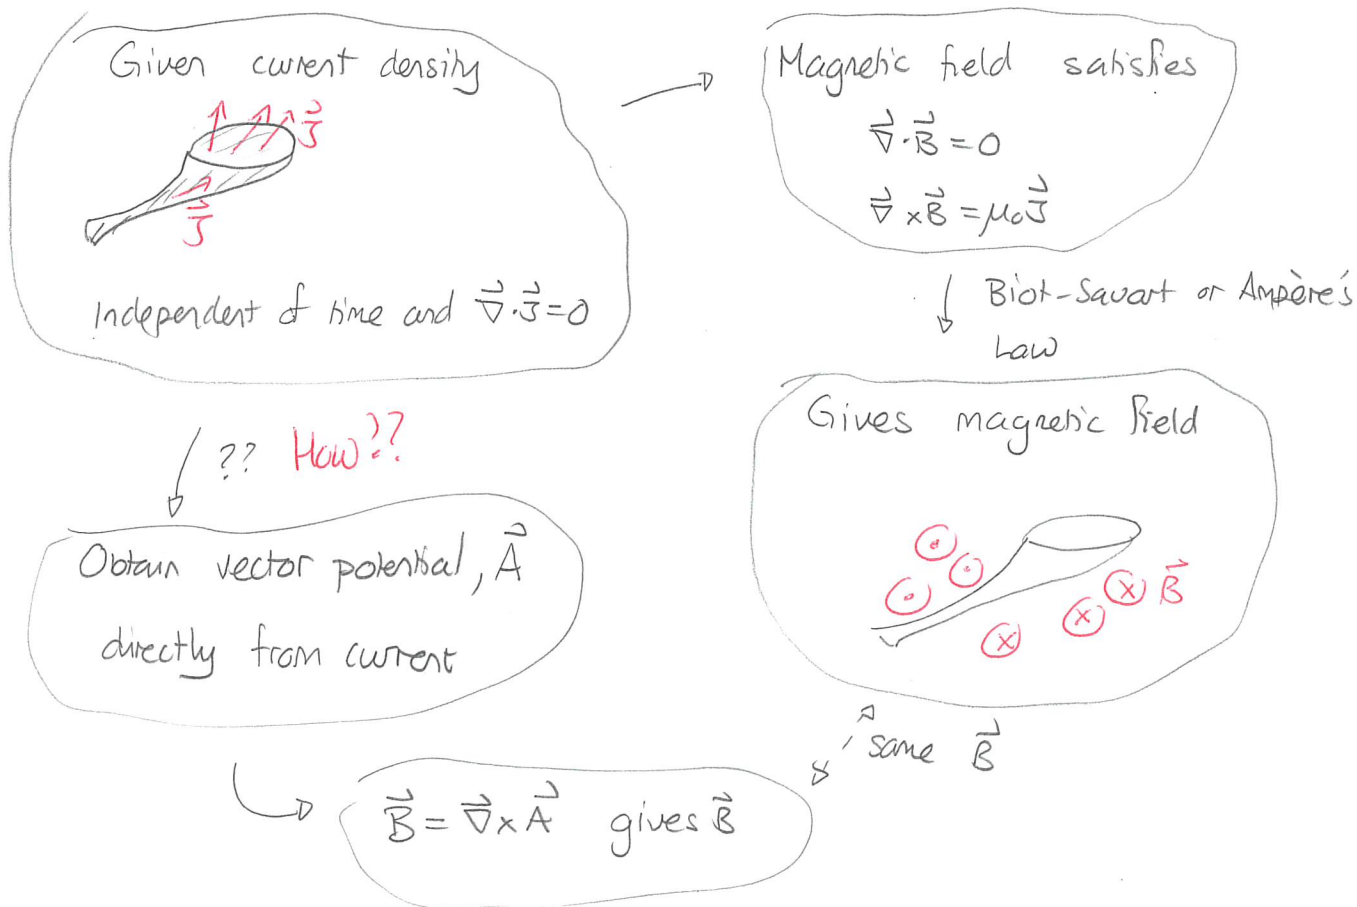 Given current density
$\vec{J}$
$\vec{J}$
Independent of time and $\vec{\nabla}\cdot\vec{J}=0$
Magnetic field satisfies
$\vec{\nabla}\cdot\vec{B}=0$
$\vec{\nabla}\times\vec{B}=\mu_0\vec{J}$
Biot-Savart or Ampère's
Law
Gives magnetic field
$\vec{B}$
?? How??
Obtain vector potential, $\vec{A}$
directly from current
same $\vec{B}$
$\vec{B}=\vec{\nabla}\times\vec{A}$ gives $\vec{B}$